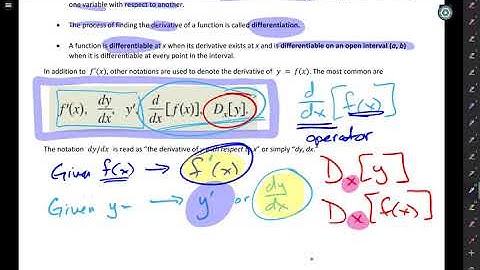 one variable with respect to another.
• The process of finding the derivative of a function is called differentiation.
• A function is differentiable at x when its derivative exists at x and is differentiable on an open interval (a, b)
when it is differentiable at every point in the interval.
In addition to f′(x), other notations are used to denote the derivative of y = f(x). The most common are
f′(x), dy/dx, y′, d/dx [f(x)], Dx[y].
d/dx [f(x)]
operator
The notation dy/dx is read as "the derivative of y with respect to x" or simply "dy, dx."
Given f(x) → f'(x)
Dx[y]
Given y= → y' or dy/dx
Dx[f(x)]